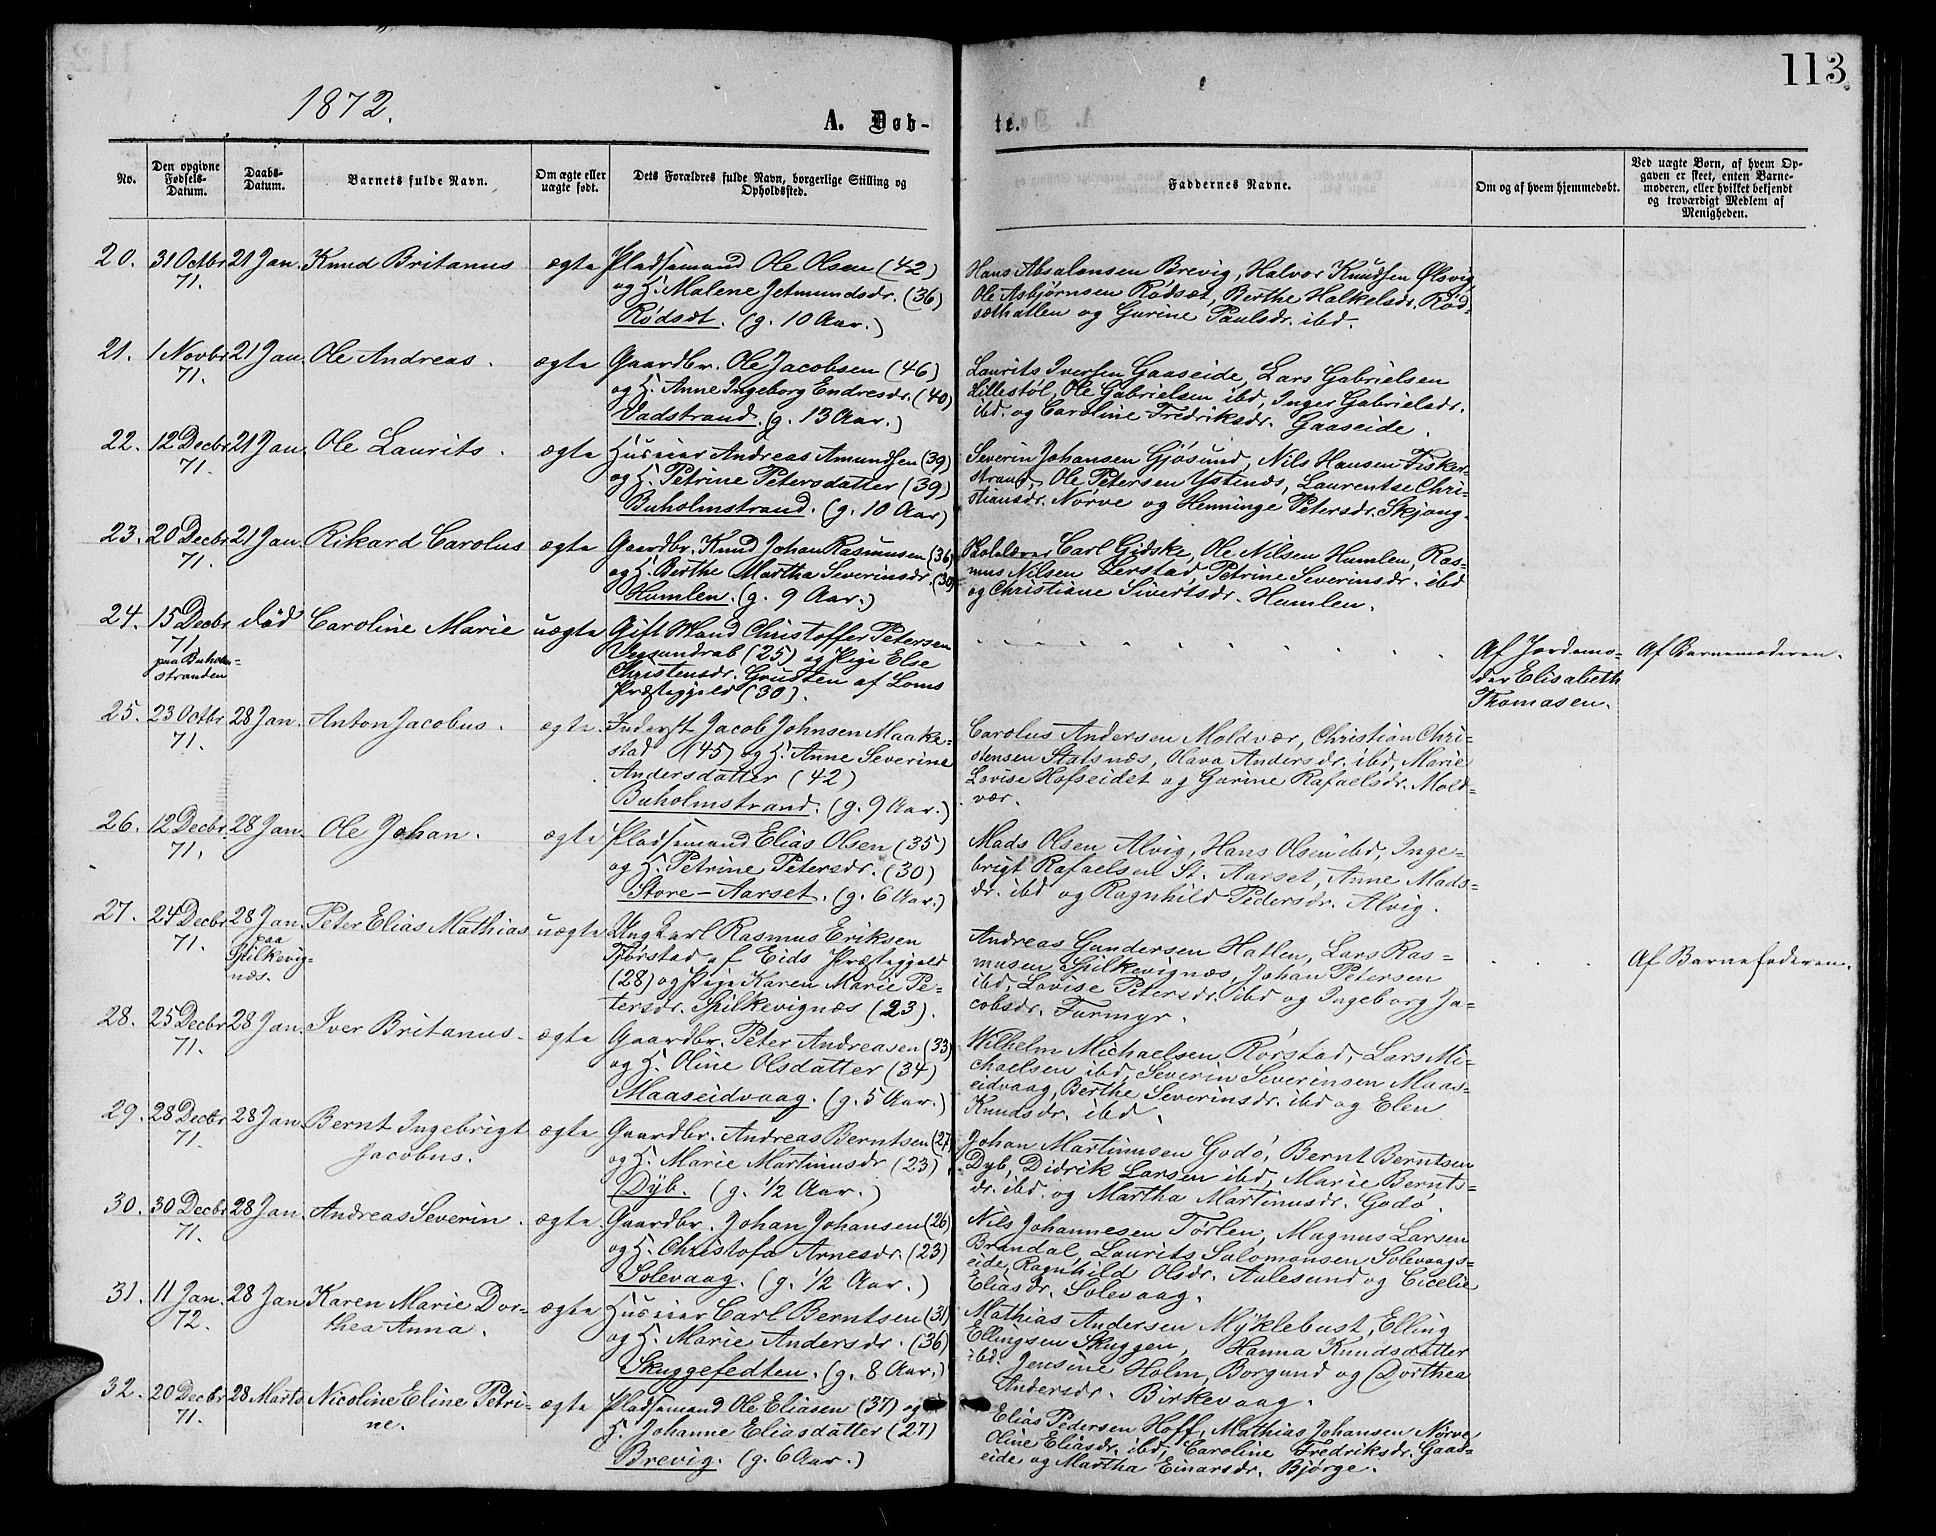 113
1872.
A. Døb-
te.
No.
Den opgivne Fødsels-Datum.
Daabs-Datum.
Barnets fulde Navn.
Om ægte eller uægte født.
Dets Forældres fulde Navn, borgerlige Stilling og Opholdssted.
Faddernes Navne.
Om og af hvem hjemmedøbt.
Ved uægte Børn, af hvem Opgaven er skeet, enten Barnemoderen, eller hvilket bekjendt og troværdigt Medlem af Menigheden.
20. 31 Octbr 71. 21 Jan. Knud Britanus ægte
Pladsemand Ole Olsen (42)
og H. Malene Jetmundsdr. (36)
Rødsæt. (g. 10 Aar.)
Hans Absalonsen Brevig, Halvor Knudsen Ølsvig,
Ole Asbjørnsen Rødsæt, Berthe Halkelsdr. Rød-
sæthatlen og Gurine Paulsdr. ibd.
21. 1 Novbr 71. 21 Jan. Ole Andreas. ægte
Gaardbr. Ole Jacobsen (46)
og H. Anne Ingeborg Endresdr. (40)
Vadstrand. (g. 13 Aar.)
Laurits Iversen Gaaseide, Lars Gabrielsen
Lillestøl, Ole Gabrielsen ibd, Inger Gabrielsdr.
ibd. og Caroline Fredriksdr. Gaaseide.
22. 12 Decbr 71. 21 Jan. Ole Laurits. ægte
Huseier Andreas Amundsen (39)
og H. Petrine Petersdatter (39)
Buholmstrand. (g. 10 Aar)
Severin Johansen Gjøsund, Nils Hansen Fisker-
strand, Ole Petersen Ystenæs, Laurentse Chri-
stiansdr. Nørve og Henninge Petersdr. Skjong.
23. 20 Decbr 71. 21 Jan. Rikard Carolus ægte
Gaardbr. Knud Johan Rasmusen (36)
og H. Berthe Martha Severinsdr. (30)
Humlen. (g. 9 Aar.)
Skolelærer Carl Gidske, Ole Nilsen Humlen, Ras-
mus Nilsen Lerstad, Petrine Severinsdr. ibd
og Christiane Sivertsdr. Humlen.
24. 15 Decbr 71 paa Buholm-
stranden død Caroline Marie uægte
Gift Mand Christoffer Petersen
Vegsundrab (25) og Pige Else
Christensdr. Grudten af Loms
Præstegjeld (30).
Af Jordemo-
der Elisabeth
Thomasen.
Af Barnemoderen.
25. 23 Octbr 71. 28 Jan. Anton Jacobus. ægte.
Inderst Jacob Johnsen Maake-
stad (45) og H. Anne Severine
Andersdatter (42)
Buholmstrand. (g. 9 Aar.)
Carolus Andersen Moldvær, Christian Chri-
stensen Statsnæs, Olava Andersdr. ibd, Marie
Lovise Hofseidet og Gurine Rafaelsdr. Mold-
vær.
26. 12 Decbr. 71. 28 Jan. Ole Johan. ægte
Pladsemand Elias Olsen (35)
og H. Petrine Petersdr. (30)
Store-Aarset. (g. 6 Aar.)
Mads Olsen Alvig, Hans Olsen ibd, Inge-
brigt Rafaelsen St. Aarset, Anne Mads-
dr. ibd og Ragnhild Pedersdr. Alvig.
27. 24 Decbr 71. 28 Jan. paa Spilkevig-
næs. Peter Elias Mathias uægte
Ung Karl Rasmus Eriksen
Tørstad af Eids Præstegjeld
(28) og Pige Karen Marie Pe-
tersdr. Spilkevignæs (23).
Andreas Gundersen Hatlen, Lars Ras-
musen Spilkevignæs, Johan Petersen
ibd, Lovise Petersdr. ibd og Ingeborg Ja-
cobsdr. Furmyr.
Af Barnefaderen.
28. 25 Decbr 71. 28 Jan. Iver Britanus. ægte
Gaardbr. Peter Andreasen (33)
og H. Oline Olsdatter (34)
Maaseidvaag. (g. 5 Aar.)
Wilhelm Michaelsen Rørstad, Lars Mi-
chaelsen ibd, Severin Severinsen Maas-
eidvaag, Berthe Severinsdr. ibd og Elen
Knudsdr. ibd.
29. 28 Decbr 71. 28 Jan. Bernt Ingebrigt
Jacobus. ægte
Gaardbr. Andreas Berntsen (27)
og H. Marie Martinusdr (23)
Dyb. (g. 1/2 Aar.)
Johan Martinusen Godø, Bernt Berntsen
Dyb, Didrik Larsen ibd, Marie Bernts-
dr. ibd. og Martha Martinusdr. Godø.
30. 30 Decbr 71. 28 Jan. Andreas Severin. ægte
Gaardbr. Johan Johansen (26)
og H. Christofa Arnesdr. (23)
Solevaag. (g. 1/2 Aar.)
Nils Johannesen Tørlen, Magnus Larsen
Brandal, Laurits Salomonsen Solevaags-
eide, Ragnhild Olsdr. Aalesund og Cicelie
Eliasdr. Solevaag.
31. 11 Jan. 72. 28 Jan Karen Marie Dor-
thea Anna. ægte
Huseier Carl Berntsen (31)
og H. Marie Andersdr. (36)
Skuggefedten. (g. 8 Aar.)
Mathias Andersen Myklebust, Elling
Ellingsen Skuggen, Hanna Knudsdatter
ibd. Jensine Holm, Borgund og Dorthea
Andersdr. Birkevaag.
32. 20 Decbr 71. 28 Marts Nicoline Eline Petri-
ne. ægte
Pladsemand Ole Eliasen (37) og
H. Johanne Eliasdatter (27)
Brevig. (g. 6 Aar.)
Elias Pedersen Hoff, Mathias Johansen Nørve,
Oline Eliasdr. ibd, Caroline Fredriksdr. Gaas-
eide og Martha Einarsdr. Bjørge.